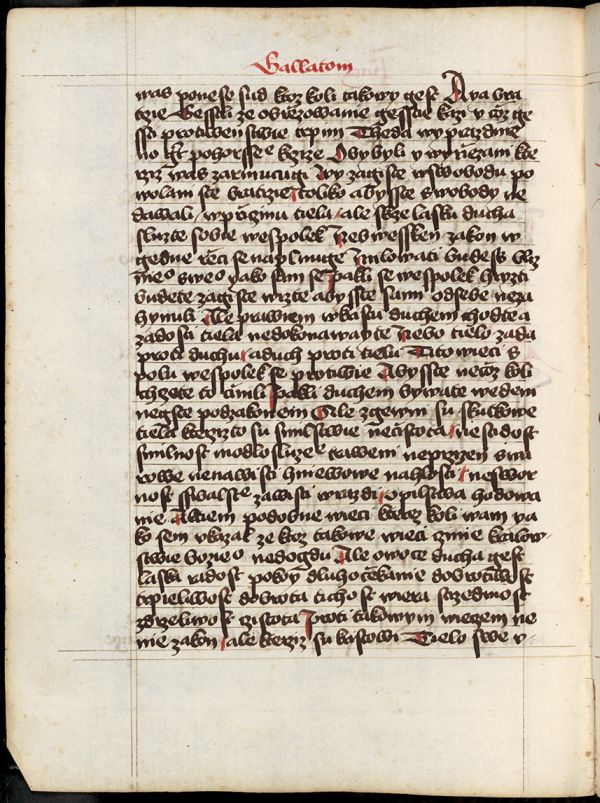 Gallatom
was ponese sud ktoz koli takowy gest A ya bra
trzie gestli ze obrzezowanie gesscze kazi y czoz ge
sscze protiwenstwie trpim Theda wyprazdnie
no gt pohorsse kerze By byli y wyrzezani kte
rziz was zarmucugi wy zagiste wswobodu po
wolani ste bratrzie toliko abysste swobody ne
dawali wprziczinu tielu ale skrze lasku ducha
sluzte sobie wespolek Nebwesken zakon w
gedne rzeczi se naplnuge Milowati budess bliz
nieo sweo yako sam se pakli se wespolek hryzti
budete zagiste wizte abysste sami odsebe neza
hynuli Ale prawiem wkrystu duchem chodte a
zadosti tiela nedokonawayte Nebo tielo zada
proti duchu a duch proti tielu Tito wieci s
polu wespolek se protiwie Abysste neczoz koli
chczete to czinili Pakli duchem bywate wedeni
negste podzakonem Ale zgewni su skutkowe
tiela kterzizto su smilstwie neczistota nestidost
smilnost modlosluze trawenie neprziezen swa
rowe nenawisti hniewowe nahlosti neswor
nost ssibalste zawisti wrazdi opilstwa hodowa
nie A tiem podobne wieci kteroz koli wam ya
ko sem vkazal ze ktoz takowe wieci czinie kralow
stwie bozieo nedogdu Ale owocze ducha gest
laska radost pokoy dluhoczekanie dobrotiwost
trpieliwost dobrota tichost wiera strzedmost
zdrzeliwost czistota Proti takowym wieczem ne
nie zakon ale kterziz su kristowi Tielo swe v